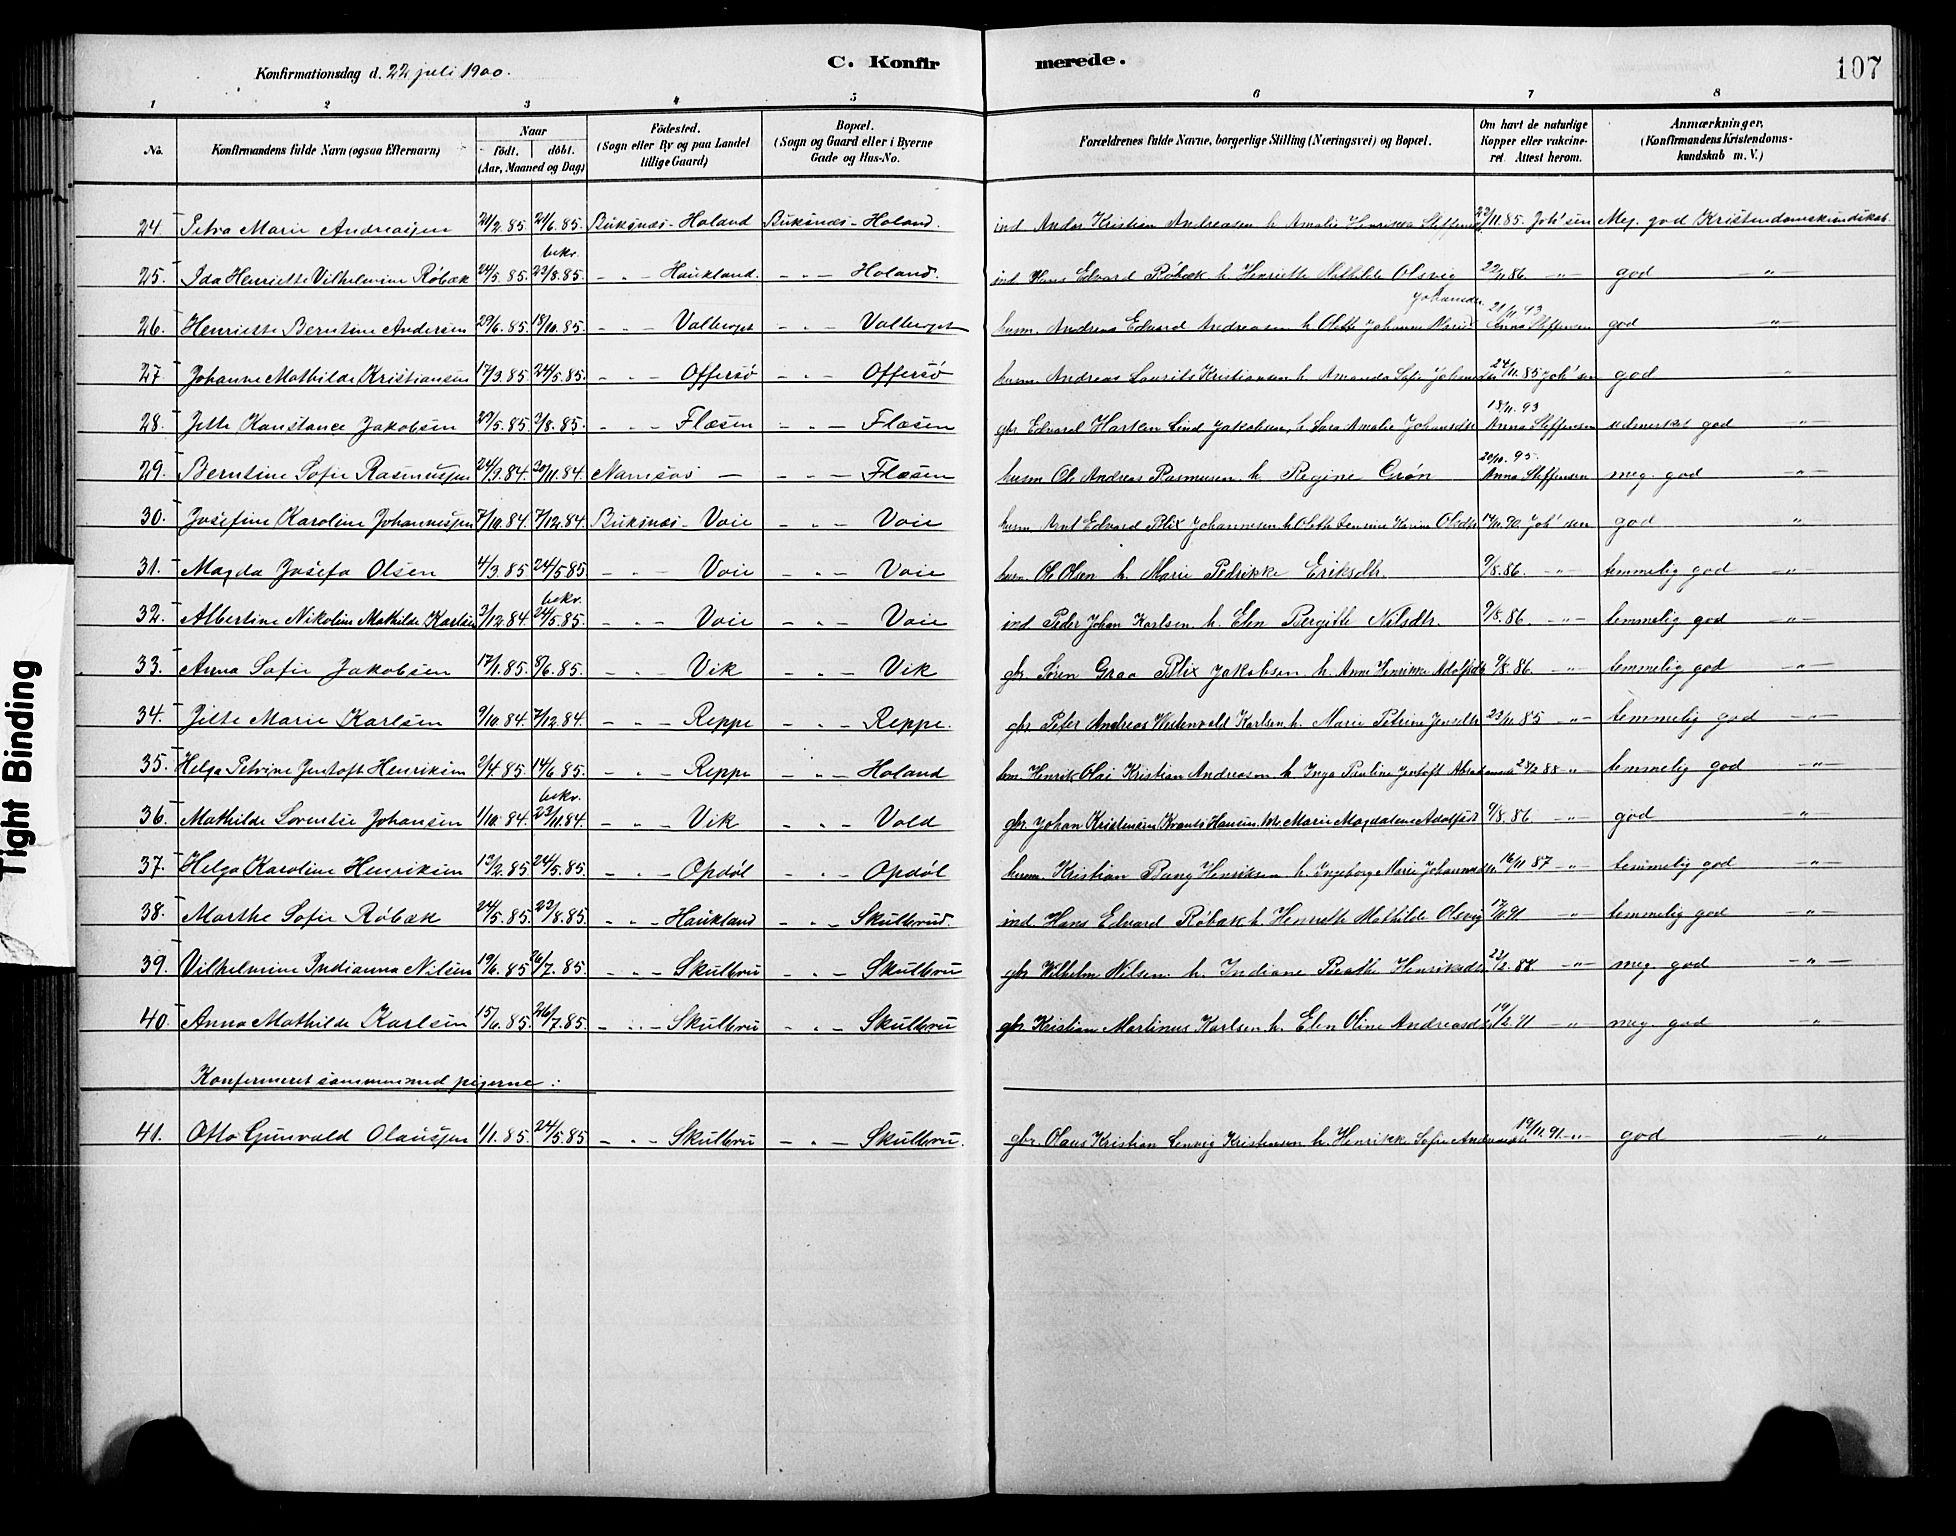 Konfirmationsdag d. 22 juli 1900. C. Konfirmerede. 107
1 2 3 4 5 6 7 8
No. Konfirmandens fulde Navn (ogsaa Efternavn) Naar födt. döbt. (Aar, Maaned og Dag) Födested. (Sogn eller By og paa Landet tillige Gaard) Bopæl. (Sogn og Gaard eller i Byerne Gade og Hus-No. Forældrenes fulde Navne, borgerlige Stilling (Næringsvei) og Bopæl. Om havt de naturlige Kopper eller vakcineret. Attest herom. Anmærkninger, (Konfirmandens Kristendomskundskab m. V.)
24. Petra Marie Andreassen 21/2.85. 21/6.85. Buksnæs - Holand Buksnæs - Holand. ind. Andor Kristian Andreasen h. Amalie Henrikka Steffensd 23/11.85. Joh'sen Meg. god Kristendomskundskab.
25. Ida Henriette Vilhelmine Röbæk 24/5.85. bekr. 23/8.85. - " - Haukland. - " - Holand. ind. Hans Edvard Röbæk h. Henriette Mathilde Olsvig 86. - " - god - " -
26. Henriette Berntine Andersen 29/6.85. 18/10.85. - " - Valberget - " - Valberget husm. Andreas Edvard Andreasen h. Olette Johanne Marie Johansdr. 21/11.93 Anna Steffensen god - " -
27. Johanne Mathilde Kristiansen 17/3.85. 24/5.85. - " - Offersö - " - Offersö husm. Andreas Laurits Kristiansen h. Amanda Sofie Johansdr 24/11.85 Joh'sen god "
28. Jette Konstance Jakobsen 29/5.85. 2/8.85. - " - Flæsen - " - Flæsen gbr. Edvard Hartlen Lind Jakobsen, h. Sara Amalie Johansdtr 18/11.93 Anna Steffensen udmerket god - " -
29. Berntine Sofie Rasmussen 24/9.84. 30/11.84. Namsos - - " - Flæsen husm Ole Andreas Rasmusen h. Regine Grön 20/10.95. Anna Steffensen meg. god - " -
30. Josefine Karoline Johannessen 7/10.84. 7/12.84. Buksnæs - Voie - " - Voie husm. Arnt Edvard Blix Johannesen h. Olette Jensine Karine Olsdtr 90. Joh'sen god "
31. Magda Josefa Olsen 4/3.85. 24/5.85 - " - Voie - " - Voie husm. Ole Olsen h. Marie Pedrikke Eriksdtr. 9/8.86. - " - temmelig god - " -
32. Albertine Nikoline Mathilde Karlsen 3/12.84. bekr. 24/5.85. - " - Voie - " - Voie ind. Peder Johan Karlsen h. Elen Bergitte Nilsdtr. 9/8.86. - " - temmelig god - " -
33. Anna Sofie Jakobsen 17/1.85. 8/6.85. - " - Vik - " - Vik gbr. Sören Graa Blix Jakobsen h. Anne Henrikke Adolfsdtr 9/8.86. - " - temmelig god - " -
34. Jette Marie Karlsen 9/10.84. 7/12.84. - " - Reppe - " - Reppe. gbr. Peter Andreas Westenvald Karlsen h. Marie Petrine Jensdtr 23/11.85 - " - temmelig god - " -
35. Helga Petrine Jentoft Henriksen 2/4.85. 14/6.85. - " - Reppe - " - Holand Henrik Olai Kristian Andreasen h. Inga Pauline Jentoft Abrahamsd 28/2 88 - " - temmelig god - " -
36. Mathilde Lorentse Johansen 1/10.84. bekr. 23/11.84. - " - Vik - " - Vold gbr. Johan Kristensen Krants Hansen h. Marie Magdalene Adolfsdtr 9/8.86. - " - god - " -
37. Helga Karoline Henriksen 13/2.85 24/5.85. - " - Opdöl - " - Opdöl husm. Kristian Bang Henriksen h. Ingeborg Marie Johannesdtr. 16/11 87 - " - temmelig god - " -
38. Marthe Sofie Röbæk 24/5.85. 23/8.85. - " - Haukland - " - Skulbrud. ind. Hans Edvard Röbæk h. Henriette Mathilde Olsvig 91. - " - temmelig god - " -
39. Vilhelmine Indianna Nilsen 19/6.85 26/7.85. - " - Skulbru - " - Skulbru gbr. Wilhelm Nilsen h. Indiane Beathe Henriksdtr. 22/2.88 - " - meg. god - " -
40. Anna Mathilde Karlsen 15/6.85. 26/7.85. - " - Skulbru - " - Skulbru gbr. Kristian Martinus Karlsen h. Elen Oline Andreasdtr. 19/2.91 - " - meg. god - " -
Konfirmeret sammen med pigerne:
41. Otto Gunvald Olaussen 1/1.85. 24/5.85 - " - Skulbru - " - Skulbru. gbr. Olaus Kristian Lenvig Kristensen h. Henrikke Sofie Andreasdtr 19/11.91. - " - god - " -
Tight Binding